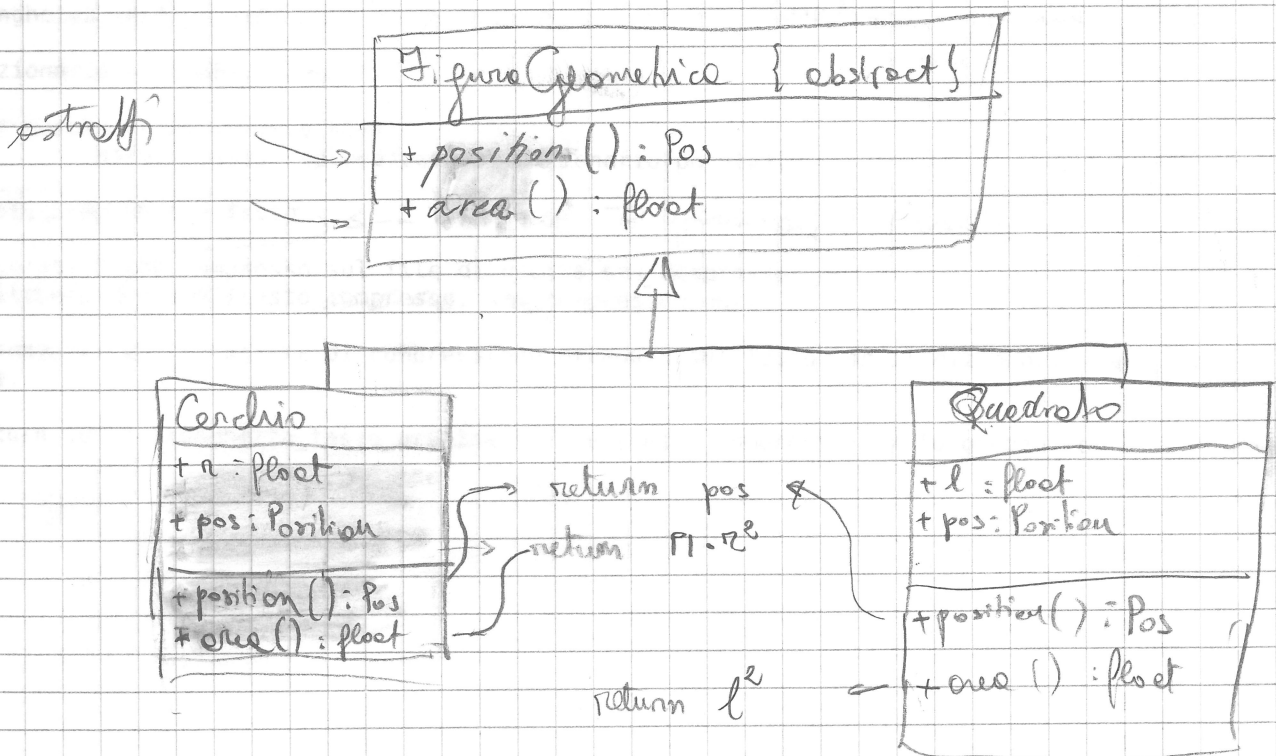 FiguraGeometrica {abstract}
astratti
+ position() : Pos
+ area() : float
Cerchio
+ r : float
+ pos : Position
+ position() : Pos
+ area() : float
return pos
return PI · r²
Quadrato
+ l : float
+ pos : Position
+ position() : Pos
+ area() : float
return l²